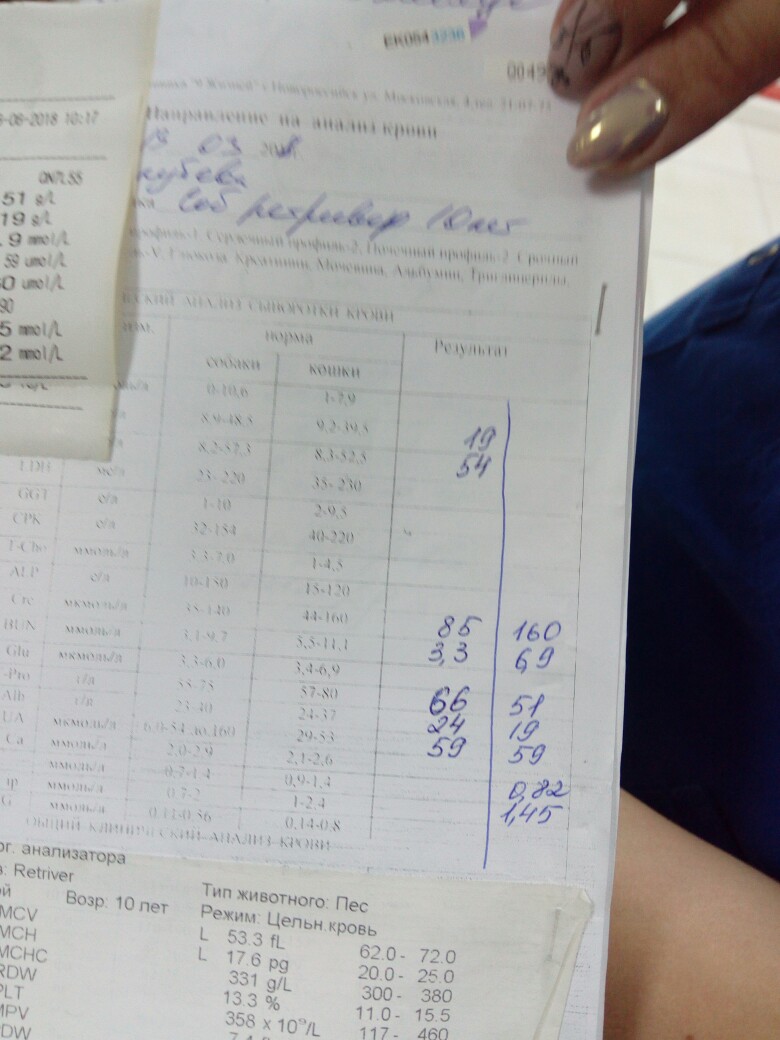 EK0843236
0049
г Новороссийск ул. Московская,
Направление на анализ крови
03 2018
Соб ретривер 10 лет
профиль-1, Сердечный профиль-2, Почечный профиль-2, Срочный
Глюкоза, Креатинин, Мочевина, Альбумин, Триглицериды,
-06-2018 10:17
51 g/L
19 g/L
.9 mmol/L
59 umol/L
0 umol/L
90
5 mmol/L
2 mmol/L
АНАЛИЗ СЫВОРОТКИ КРОВИ
норма Результат
собаки кошки
0-10,6 1-7,9
8,9-48,5 9,2-39,5 19
8,2-57,3 8,3-52,5 54
LDH ме/л 23-220 35-230
GGT е/л 1-10 2-9,5
CPK е/л 32-154 40-220
T-Cho ммоль/л 3,3-7,0 1-4,5
ALP е/л 10-150 15-120
Cre мкмоль/л 35-140 44-160 85 160
BUN ммоль/л 3,1-9,7 5,5-11,1 3,3 6,9
Glu мкмоль/л 3,3-6,0 3,4-6,9
-Pro г/л 55-75 57-80 66 51
Alb г/л 23-40 24-37 24 19
UA мкмоль/л 6,0-54 до 160 29-53 59 59
Ca ммоль/л 2,0-2,9 2,1-2,6
ммоль/л 0,7-1,4 0,9-1,4 0,82
ip ммоль/л 0,7-2 1-2,4 1,45
G ммоль/л 0,11-0,56 0,14-0,8
ОБЩИЙ КЛИНИЧЕСКИЙ АНАЛИЗ КРОВИ
ог. анализатора
: Retriver Тип животного: Пес
ой Возр: 10 лет Режим: Цельн.кровь
MCV L 53.3 fL 62.0 - 72.0
MCH L 17.6 pg 20.0 - 25.0
MCHC 331 g/L 300 - 380
RDW 13.3 % 11.0 - 15.5
PLT 358 x 10^9/L 117 - 460
MPV
PDW